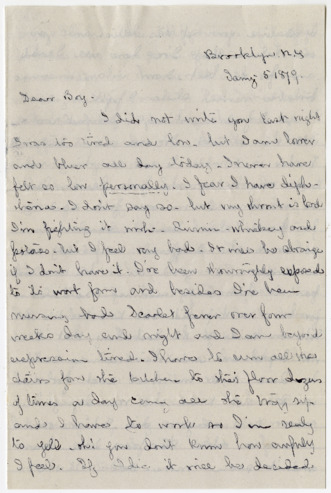 Brooklyn N.Y
Jany 5 1879.
Dear Boy.
I did not write you last night
I was too tired and low. but I am lower
and bluer all day today. I never have
felt so low personally. I fear I have diph-
theria. I don't say so. but my throat is bad
I'm fighting it with. Quinin - whiskey and
potass. but I feel very bad. It will be strange
if I don't have it. I've been thoroughly exposed
to its worst form and besides I've been
nursing bad Scarlet fever over four
weeks day and night and I am beyond
expression tired. I have to run all these
stairs from the kitchen to this floor dozens
of times a day coming all the way up
and I have to work so I'm ready
to yell. Oh! you don't know how awfully
I feel. If I die it will be decided